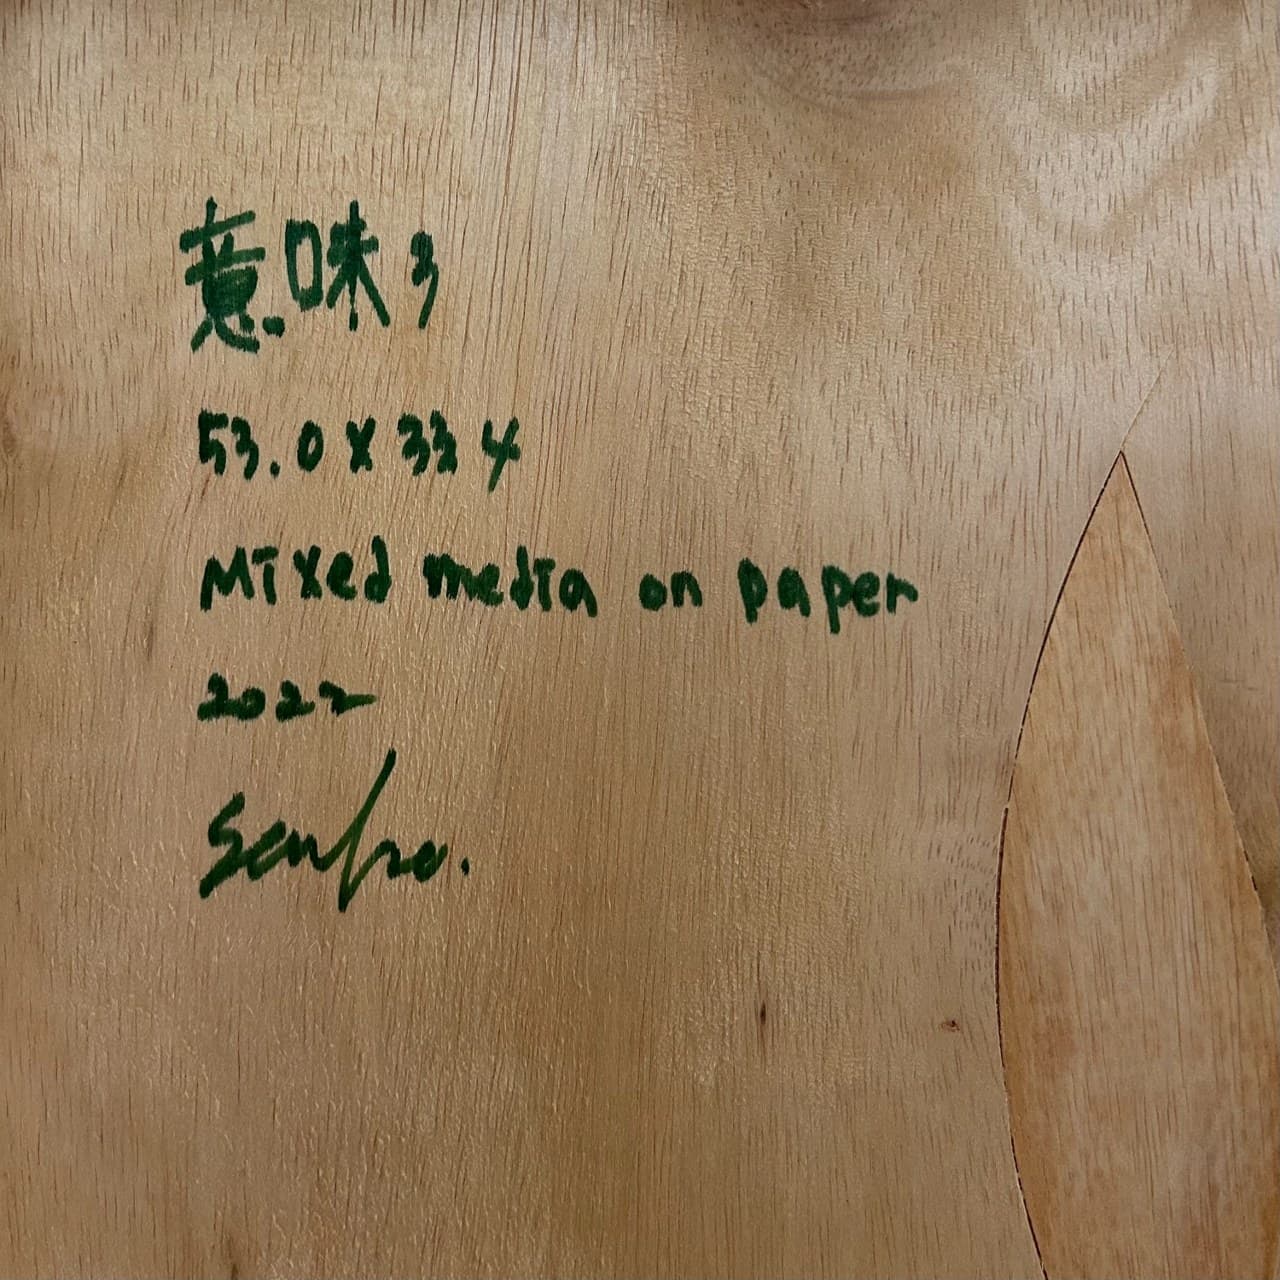 意味 3
53.0 x 33.4
Mixed media on paper
2022